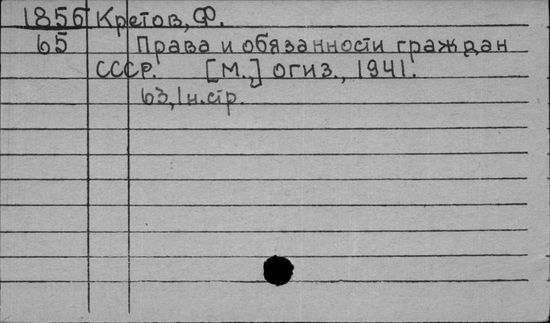 1856 Кретов, Ф.
65 Права и обязанности граждан
СССР. [М.,] огиз., 1941.
63, 1 н.стр.